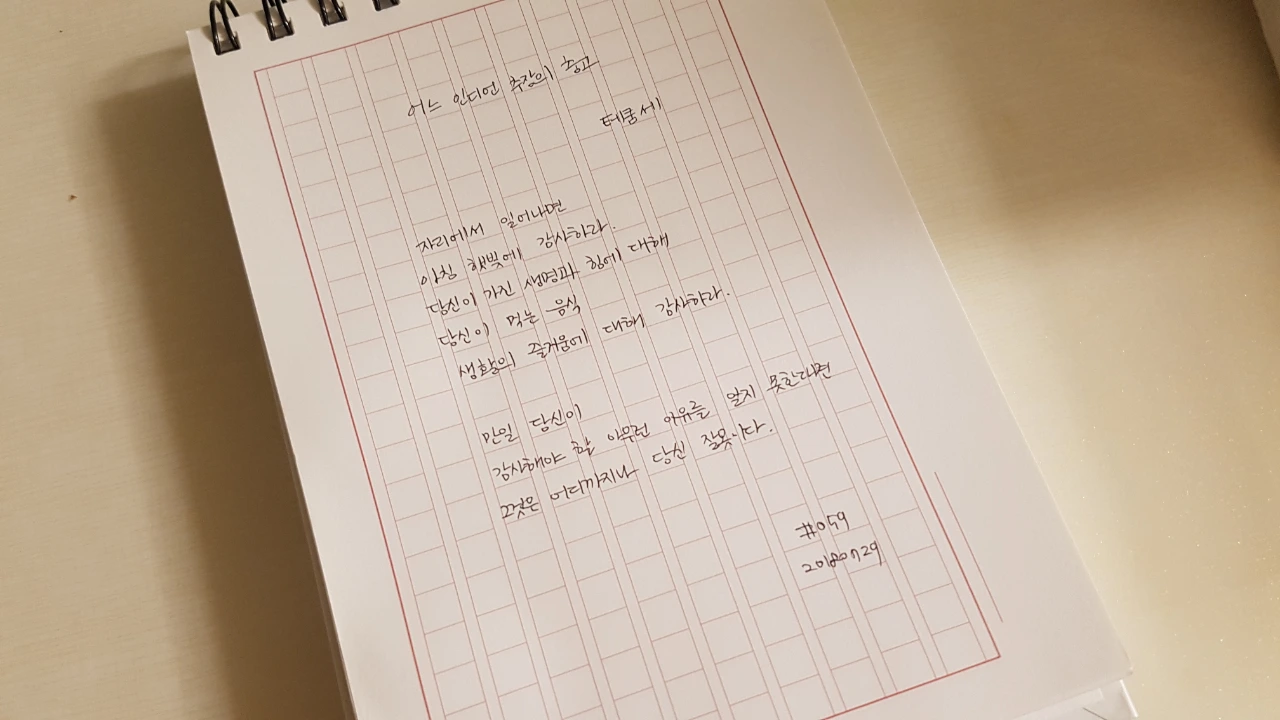 어느 인디언 추장의 충고
테쿰세
자리에서 일어나면
아침 햇빛에 감사하라.
당신이 가진 생명과 힘에 대해
당신이 먹는 음식
생활의 즐거움에 대해 감사하라.
만일 당신이
감사해야 할 아무런 이유를 알지 못한다면
그것은 어디까지나 당신 잘못이다.
#059
20180729